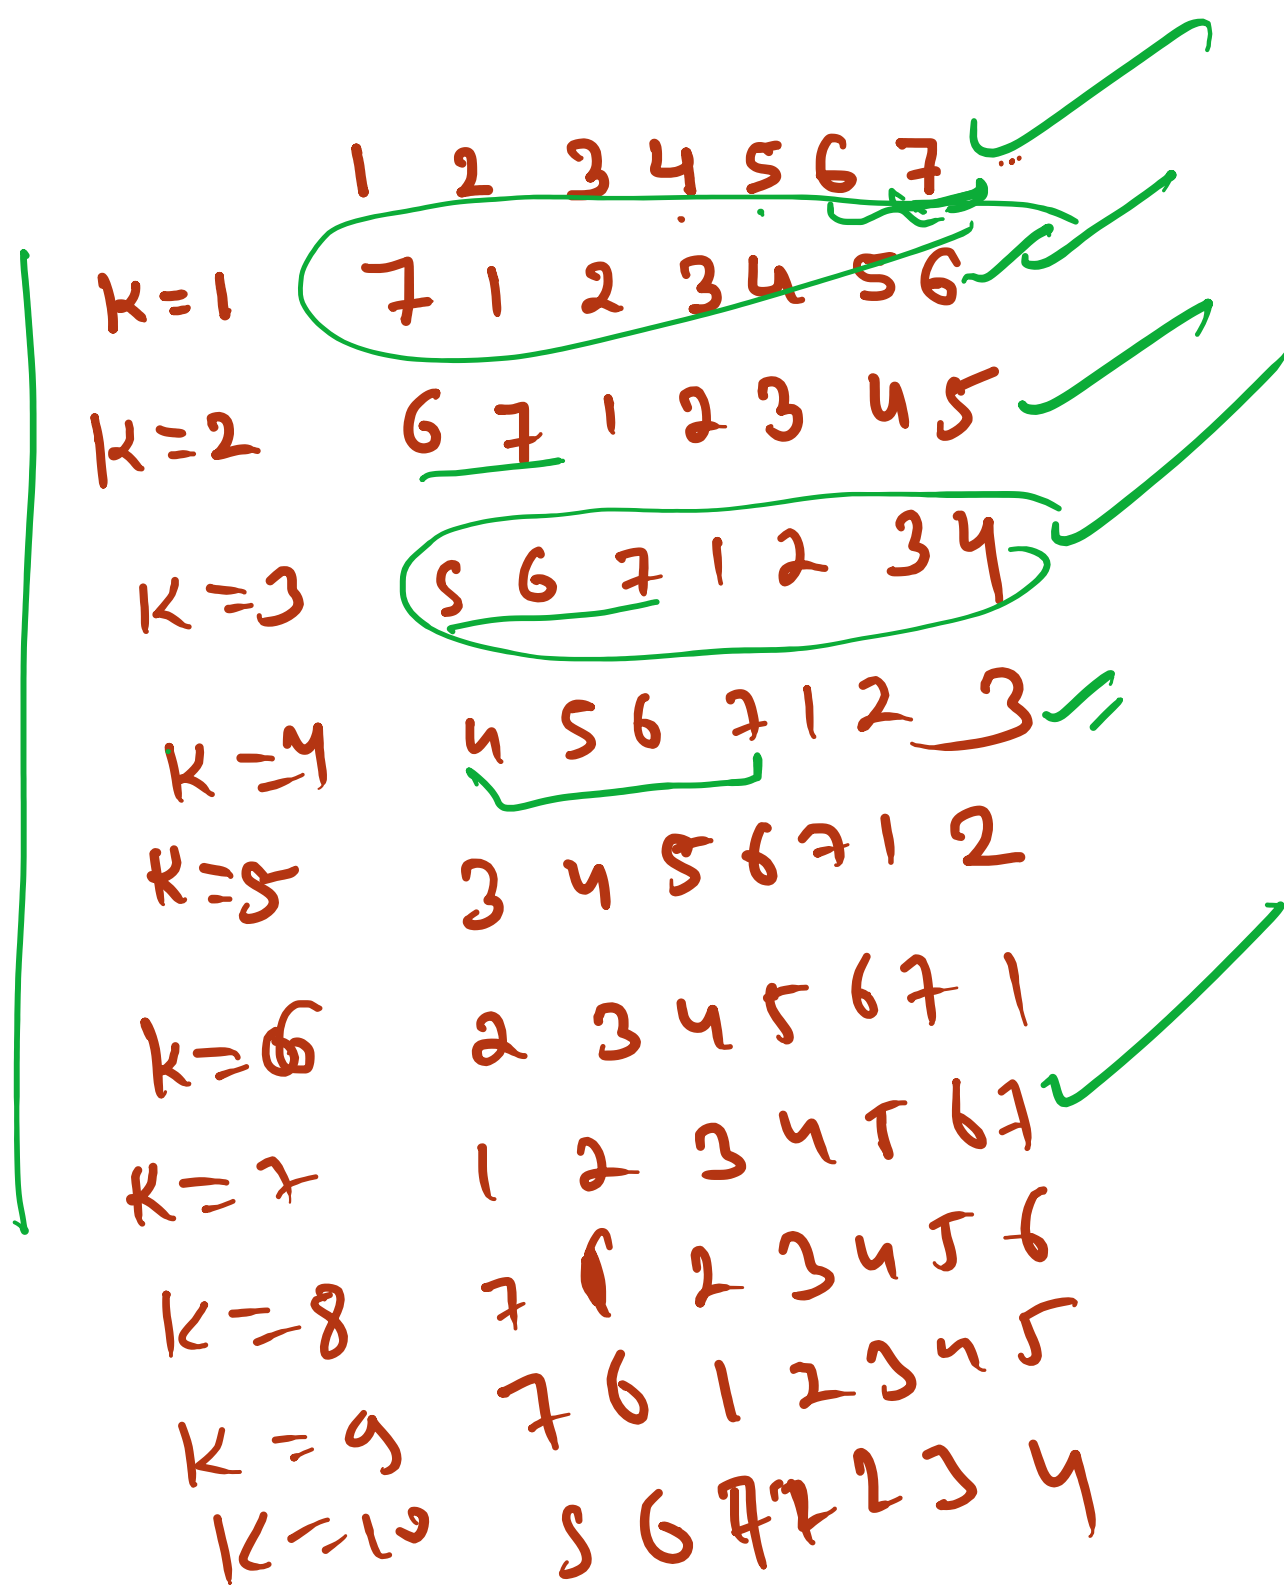 1 2 3 4 5 6 7 ...
K=1 7 1 2 3 4 5 6
K=2 6 7 1 2 3 4 5
K=3 5 6 7 1 2 3 4
K=4 4 5 6 7 1 2 3
K=5 3 4 5 6 7 1 2
K=6 2 3 4 5 6 7 1
K=7 1 2 3 4 5 6 7
K=8 7 1 2 3 4 5 6
K=9 7 6 1 2 3 4 5
K=10 5 6 7 2 3 4